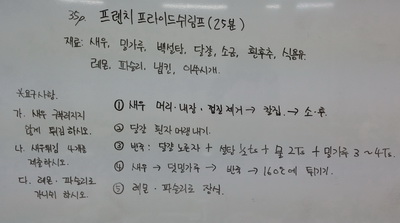 35p. 프렌치 프라이드쉬림프 (25분)
재료: 새우, 밀가루, 백설탕, 달걀, 소금, 흰후추, 식용유,
레몬, 파슬리, 냅킨, 이쑤시개.
※요구사항.
가. 새우 구부러지지
않게 튀김 하시오.
나. 새우튀김 4개를
제출하시오.
다. 레몬·파슬리로
가니쉬 하시오.
① 새우 머리·내장·껍질 제거 → 칼집. → 소·후.
② 달걀 흰자 머랭내기.
③ 반죽: 달걀 노른자 + 설탕 1/2ts + 물 2Ts + 밀가루 3~4Ts.
④ 새우 → 덧밀가루 → 반죽 → 160℃에 튀기기.
⑤ 레몬·파슬리로 장식.